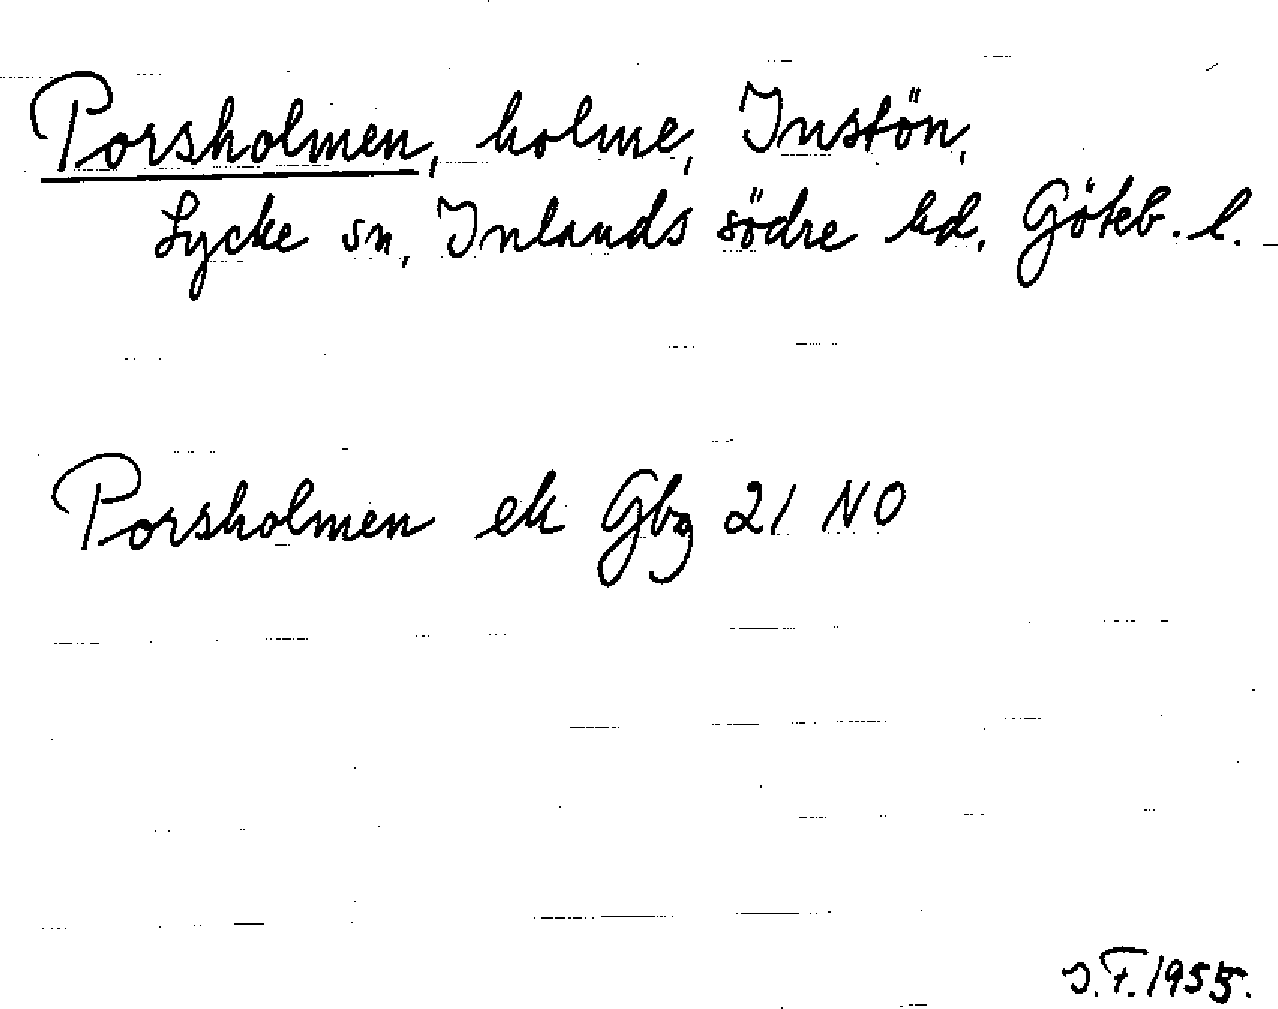 Porsholmen, holme, Instön,
Lycke sn, Inlands södre hd, Göteb. l.
Porsholmen ek Gbg 21 NO
J.F. 1955.